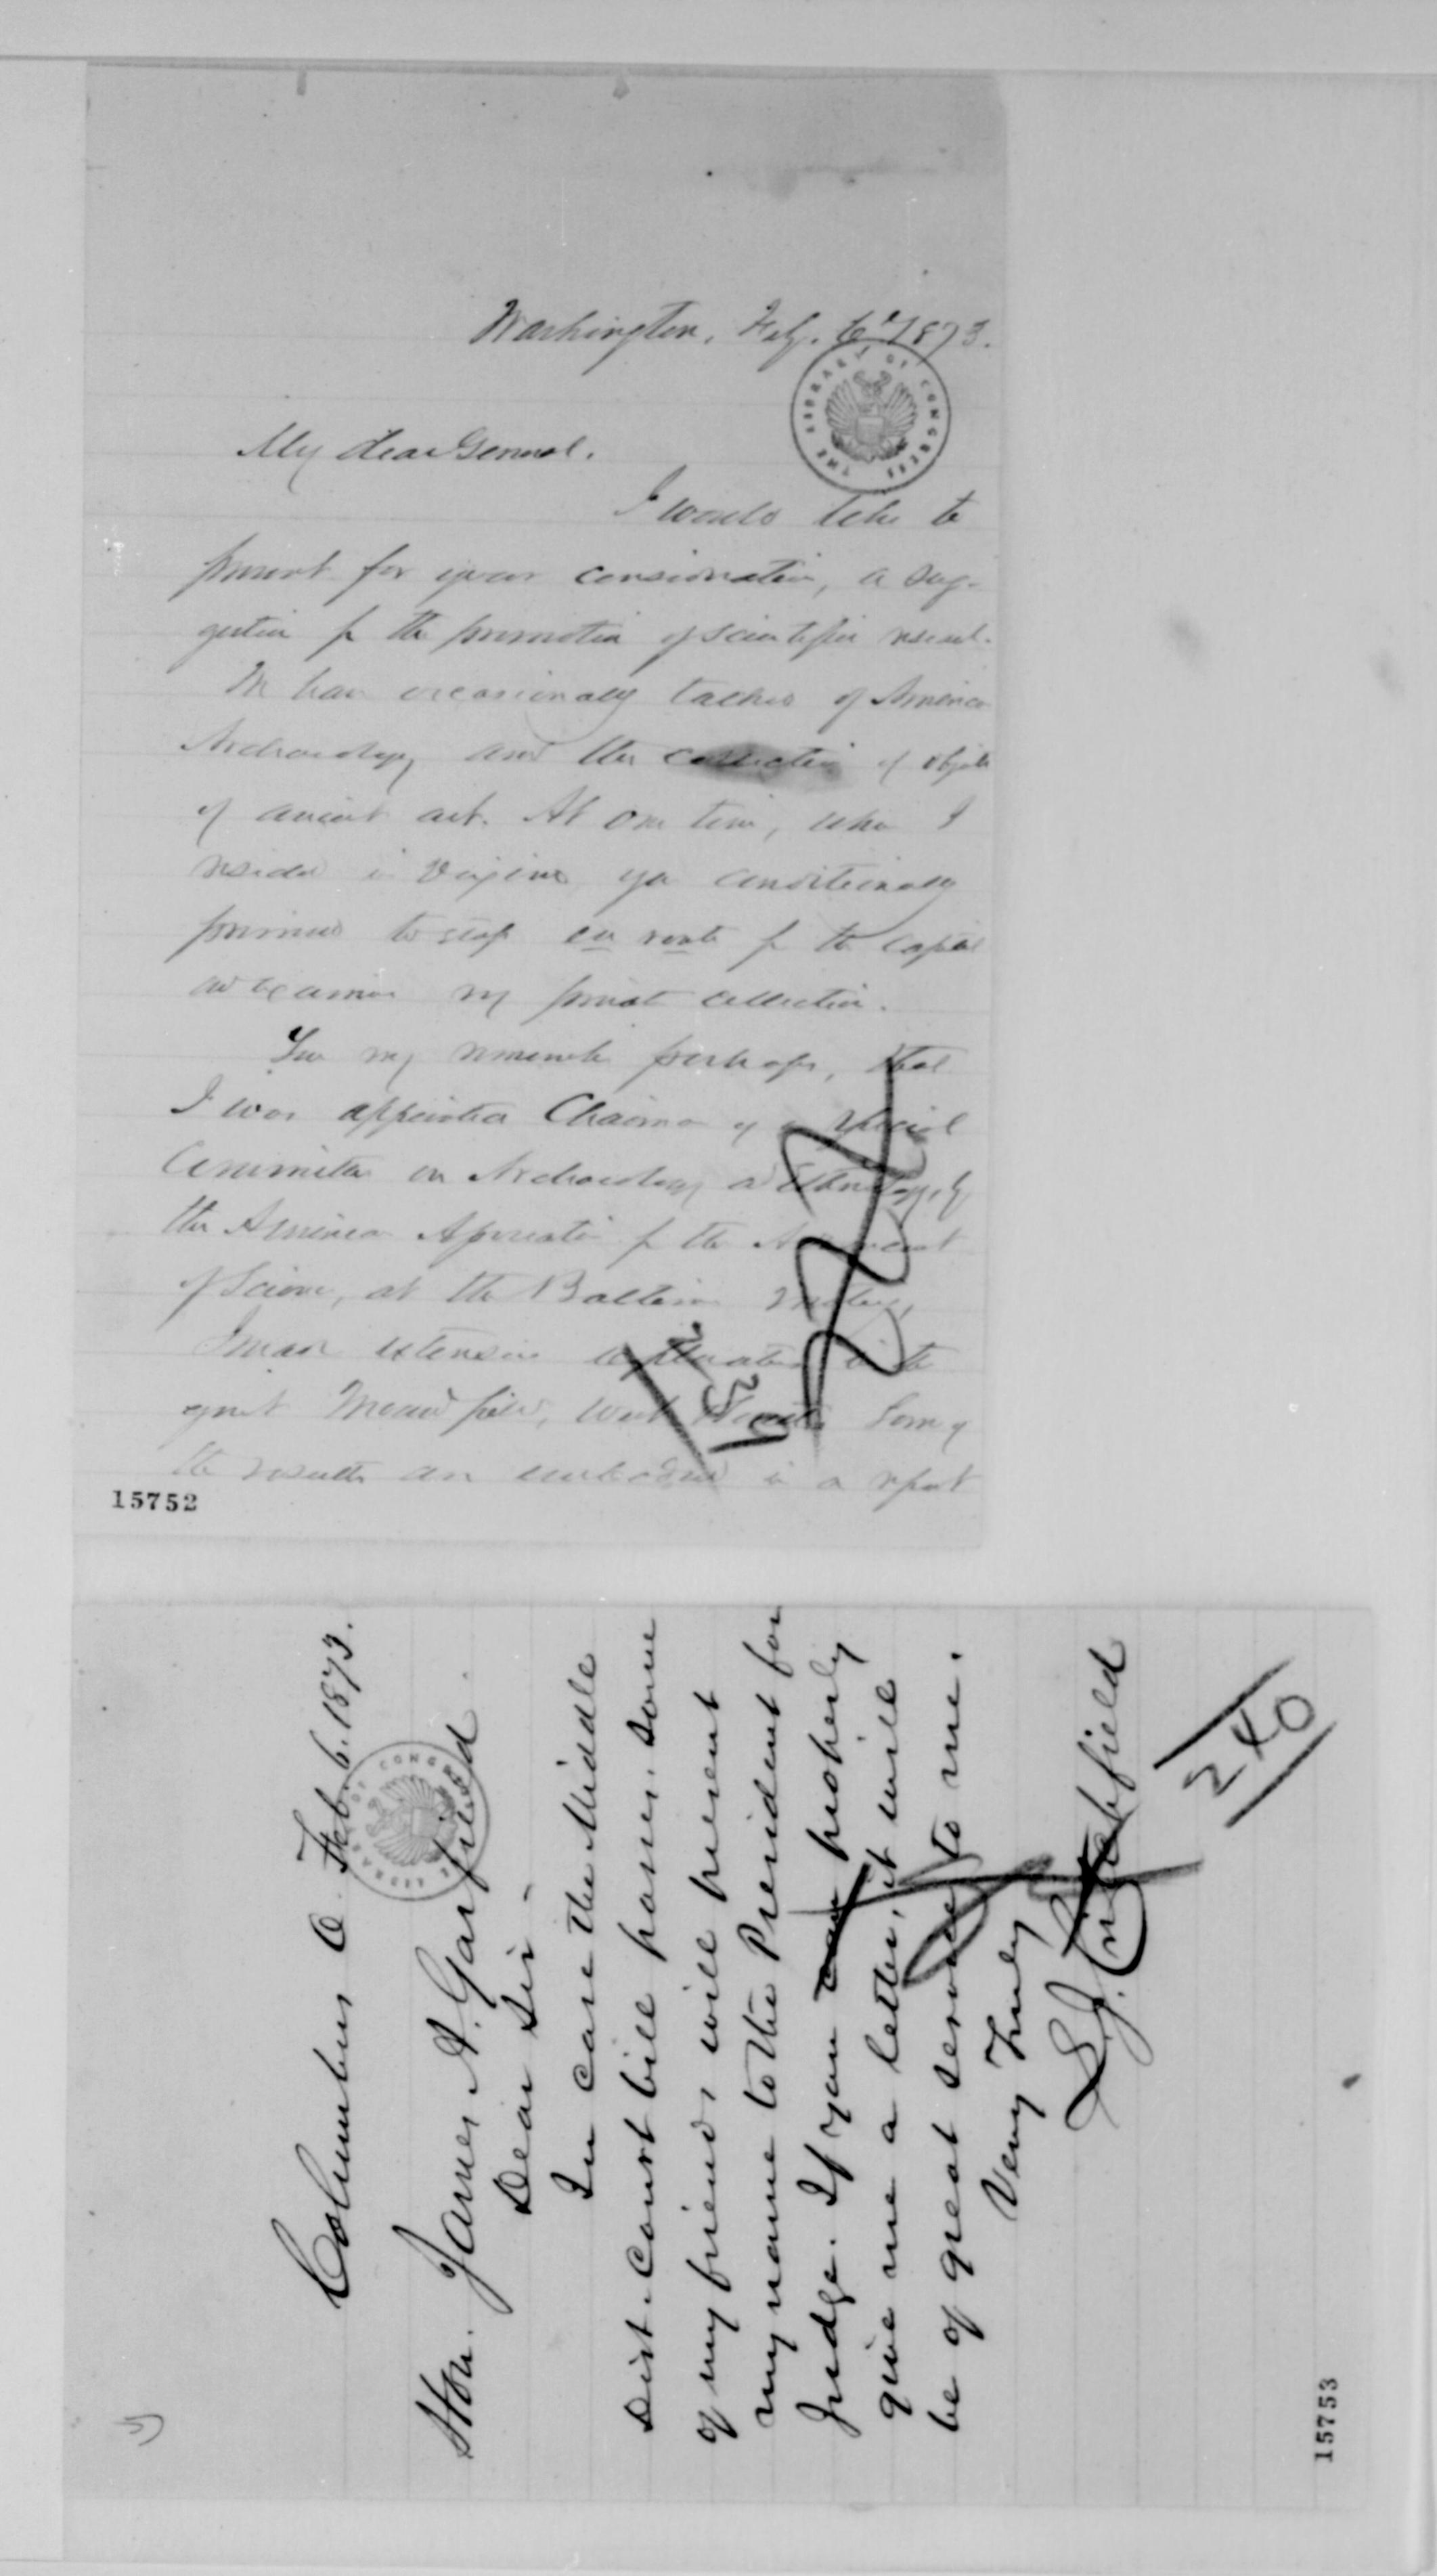 Washington, Feby. 6th 1873.
THE LIBRARY OF CONGRESS
My dear General.
I would like to
present for your consideration, a sug-
gestion for the promotion of scientific
We have occasionally talked of American
Archaeology and the collection of objects
of ancient art. At one time, when I
resided in Virginia you conditionally
promised to stop en route for the Capital
and examine my private collection.
You may remember perhaps, that
I was appointed Chairman of a special
Committee on Archaeology and Ethnology, by
the American Association for the Advancement
of Science, at the Baltimore meeting,
I made extensive explorations in the
great Mound field, Some of
the results are embodied in a report
15752
Columbus O. Feb. 6. 1873.
Hon. James A. Garfield.
Dear Sir -
In case the Middle
Dist. Court bill passes, some
of my friends will present
my name to the President for
Judge. If you can properly
give me a letter, it will
be of great service to me.
Very Truly
L. J. Critchfield
240
15753